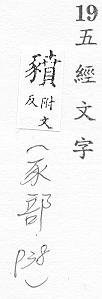 19 五經文字
豶 附文反
(豕部 P38)